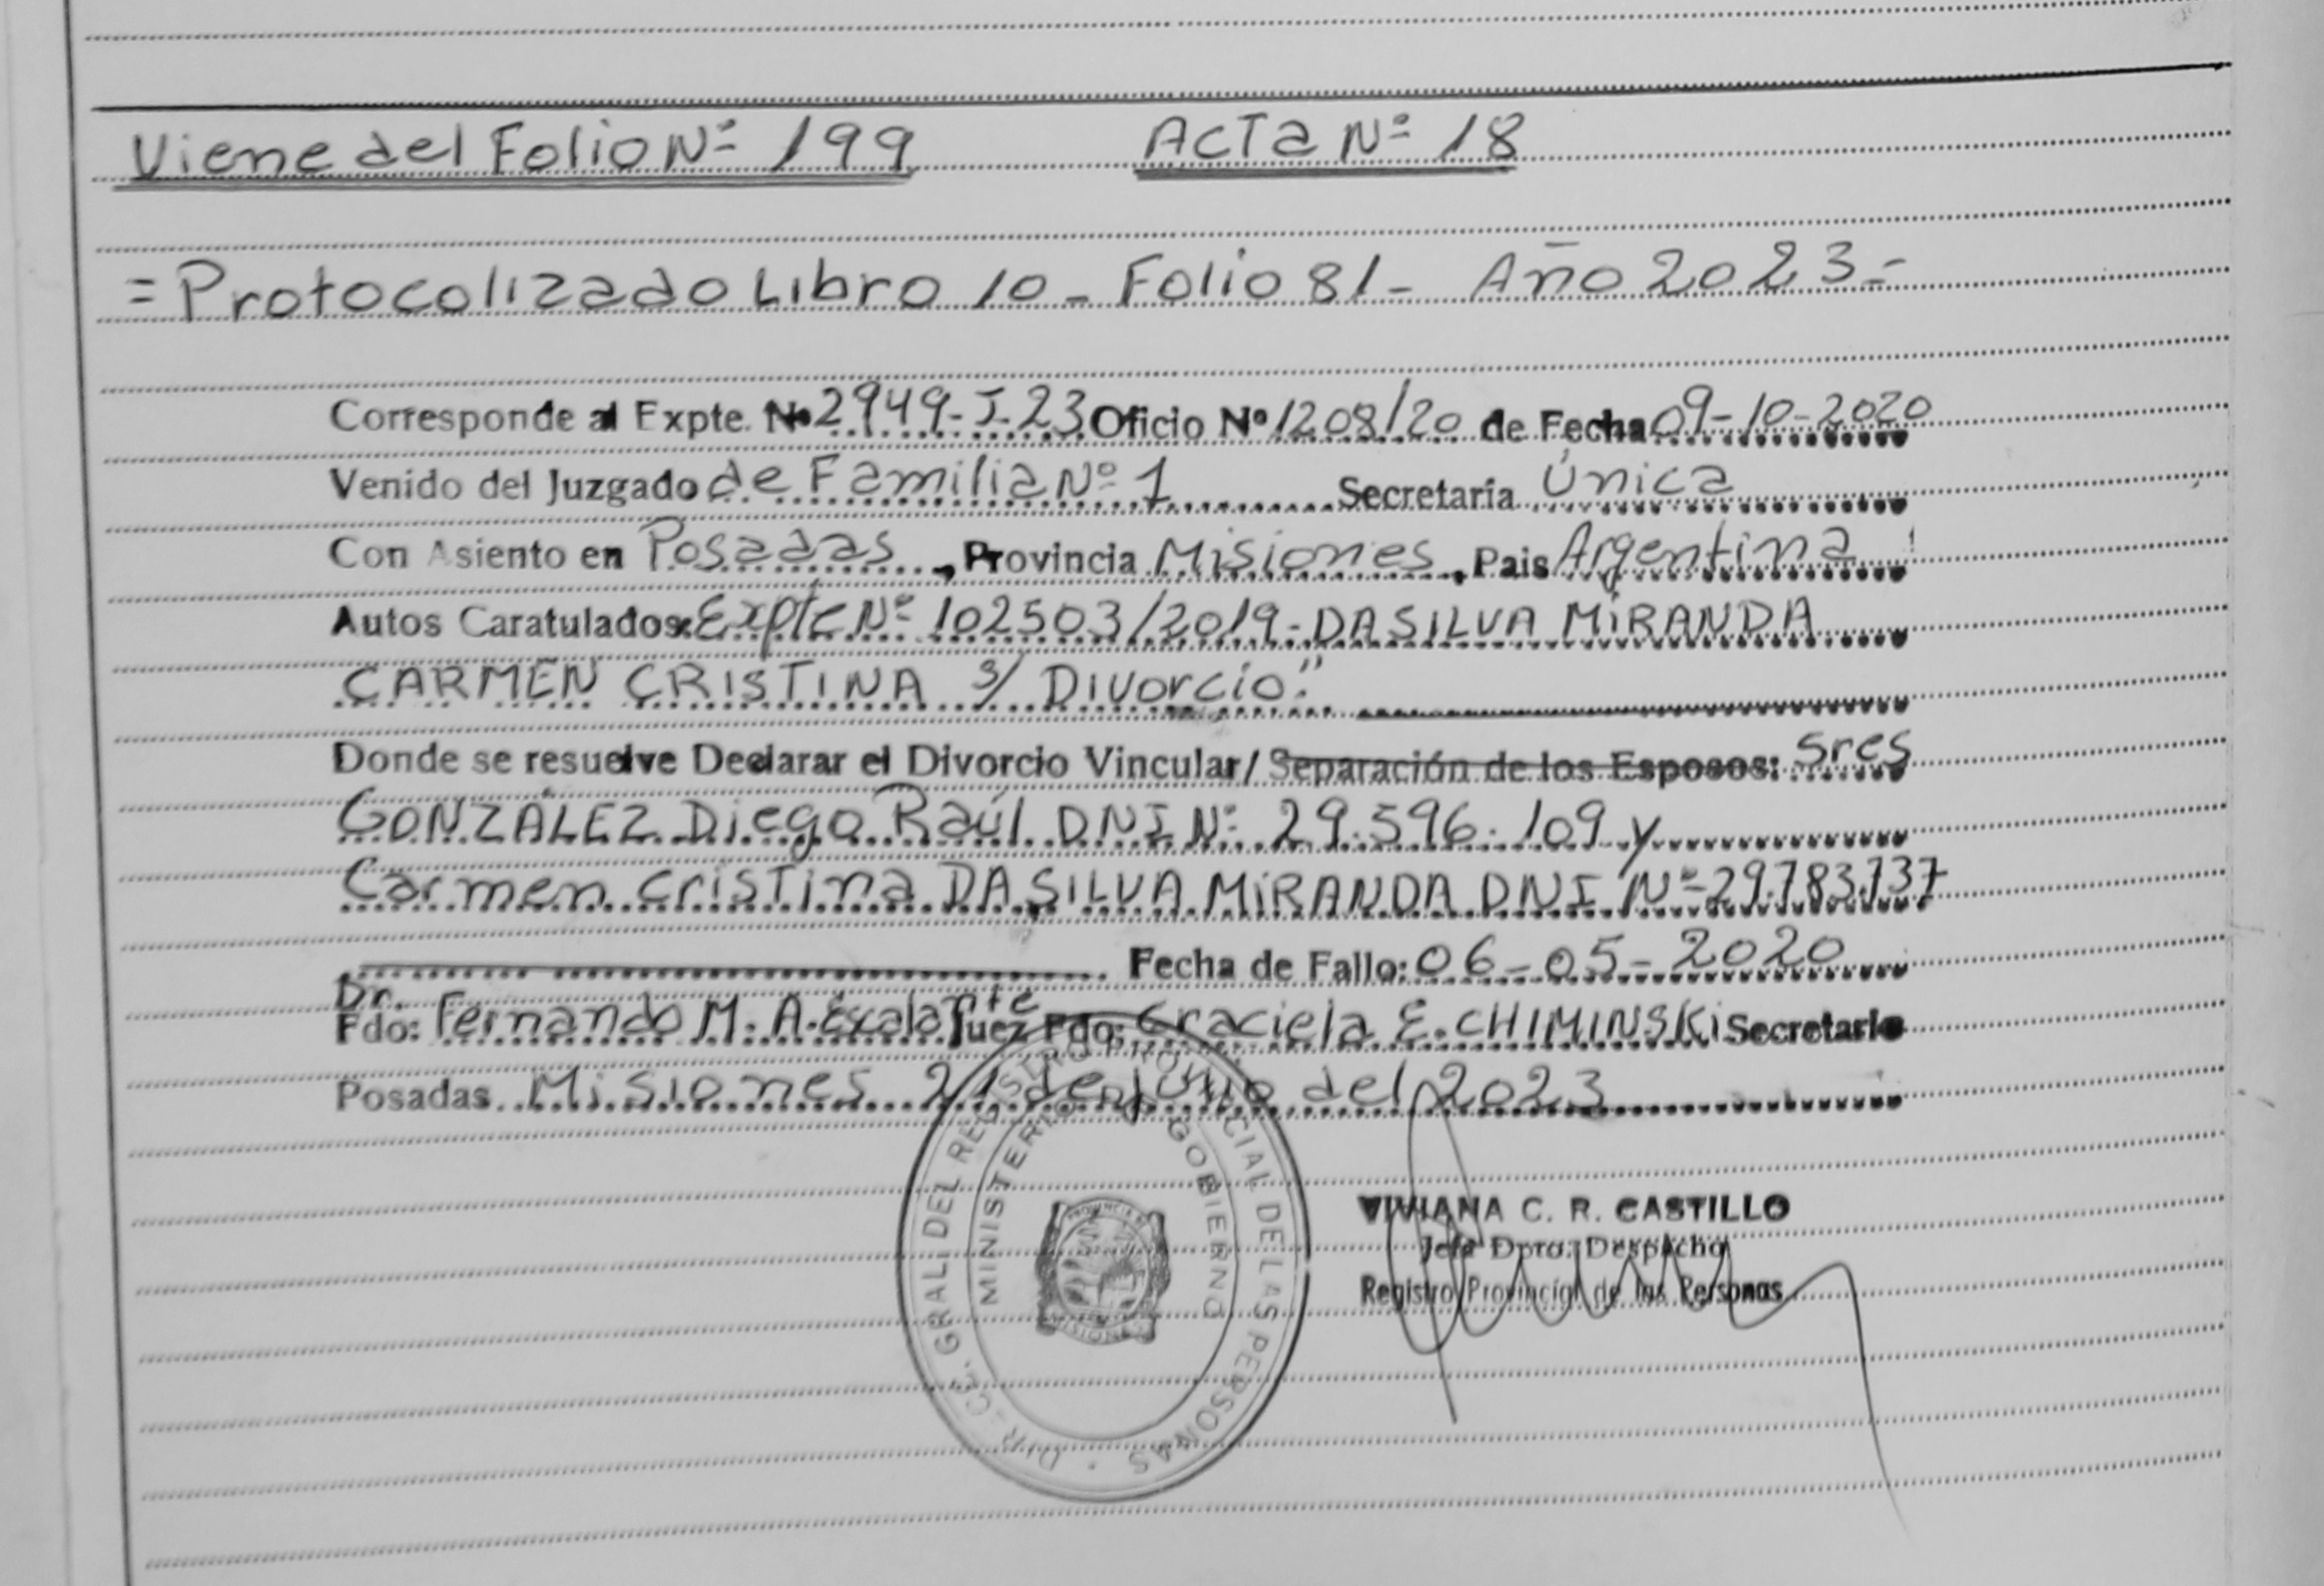 Viene del Folio Nº 199 Acta Nº 18
= Protocolizado Libro 10 - Folio 81 - Año 2023 =
Corresponde al Expte. Nº 2949-I-23 Oficio Nº 1208/20 de Fecha 09-10-2020
Venido del Juzgado de Familia Nº 1 Secretaría Única
Con Asiento en Posadas, Provincia Misiones, Pais Argentina
Autos Caratulados: Expte Nº 102503/2019 - DA SILVA MIRANDA
CARMEN CRISTINA s/ Divorcio."
Donde se resuelve Declarar el Divorcio Vincular/ Separación de los Esposos: Sres
GONZÁLEZ Diego Raúl DNI Nº 29.596.109 y
Carmen Cristina DA SILVA MIRANDA DNI Nº 29.783.737
Fecha de Fallo: 06-05-2020
Dr.
Fdo: Fernando M. A. Escalante Juez Fdo: Graciela E. CHIMINSKI Secretario
Posadas Misiones 21 de Junio del 2023
DIR. GRAL DEL REGISTRO PROVINCIAL DE LAS PERSONAS
MINISTERIO DE GOBIERNO
VIVIANA C. R. CASTILLO
Jefa Dpto. Despacho
Registro Provincial de las Personas